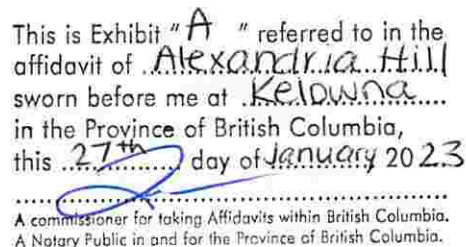 This is Exhibit "A" referred to in the
affidavit of Alexandria Hill
sworn before me at Kelowna
in the Province of British Columbia,
this 27th day of January 2023
A commissioner for taking Affidavits within British Columbia.
A Notary Public in and for the Province of British Columbia.